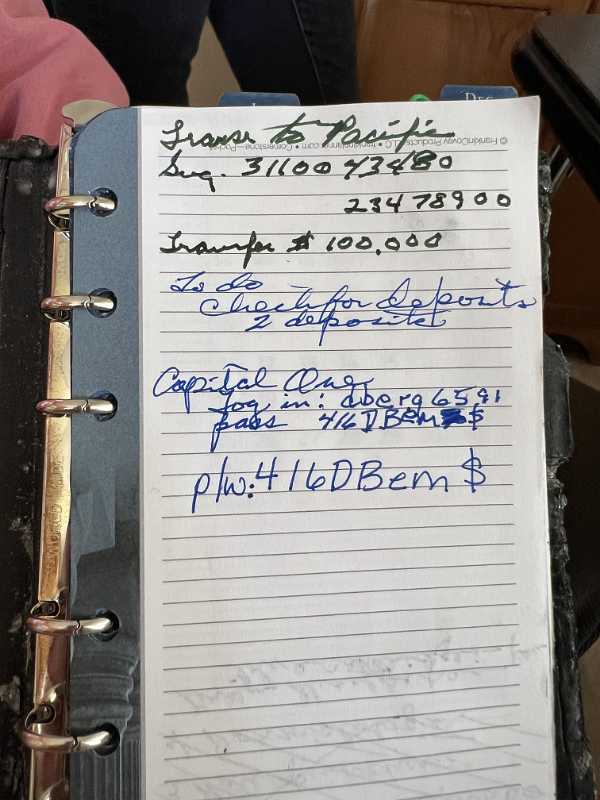 DEC
© FranklinCovey Products, LLC • franklinplanner.com • Cornerstone—Pocket
to Pacific
31100 43480
23478900
Transfer $ 100,000
To do
check for deposits
2 deposits
Capital One
log in: dberg6591
pass 416DBem$
p/w: 416DBem$